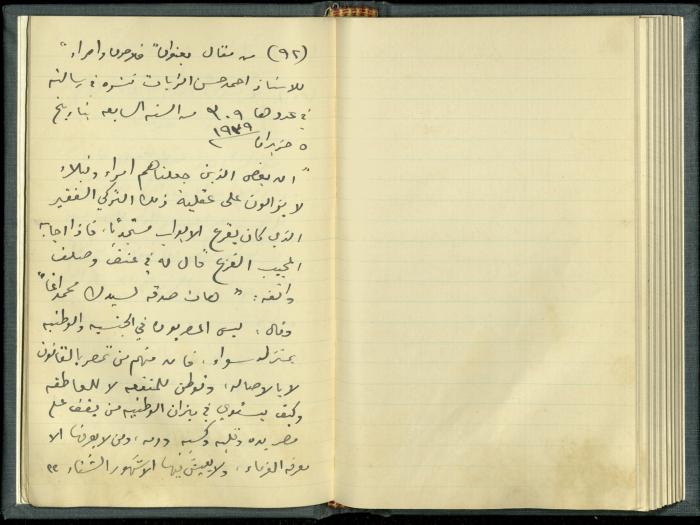 (٩٢) من مقال بعنوان "فلاحون وامراء"
للاستاذ احمد حسن الزيات نشره في رسالته
في عددها ٣٠٩ من السنه السابعه بتاريخ
٥ حزيران ١٩٣٩
"ان بعض الذين جعلناهم امراء ونبلاء
لا يزالون على عقلية ذلك التركي الفقير
الذي كان يقرع الابواب مستجديًا، فاذا اجابه
المجيب القرع قال له في عنف وصلف
وانفه: "هات صدقه لسيدك محمد اغا"
وقال: ليس المصريون في الجنسيه والوطنيه
بمنزله سواء، فان منهم من تمصر بالقانون
لا بالاصاله، وتوطن للمنفعه لا للعاطفه
وكيف يستوي في ميزان الوطنيه من يقف على
مصر يده وقلبه وكسبه ودمه، ومن لا يعرفها الا
معرفه الغرماء، ولا يعيش فيها الا شهور الشتاء